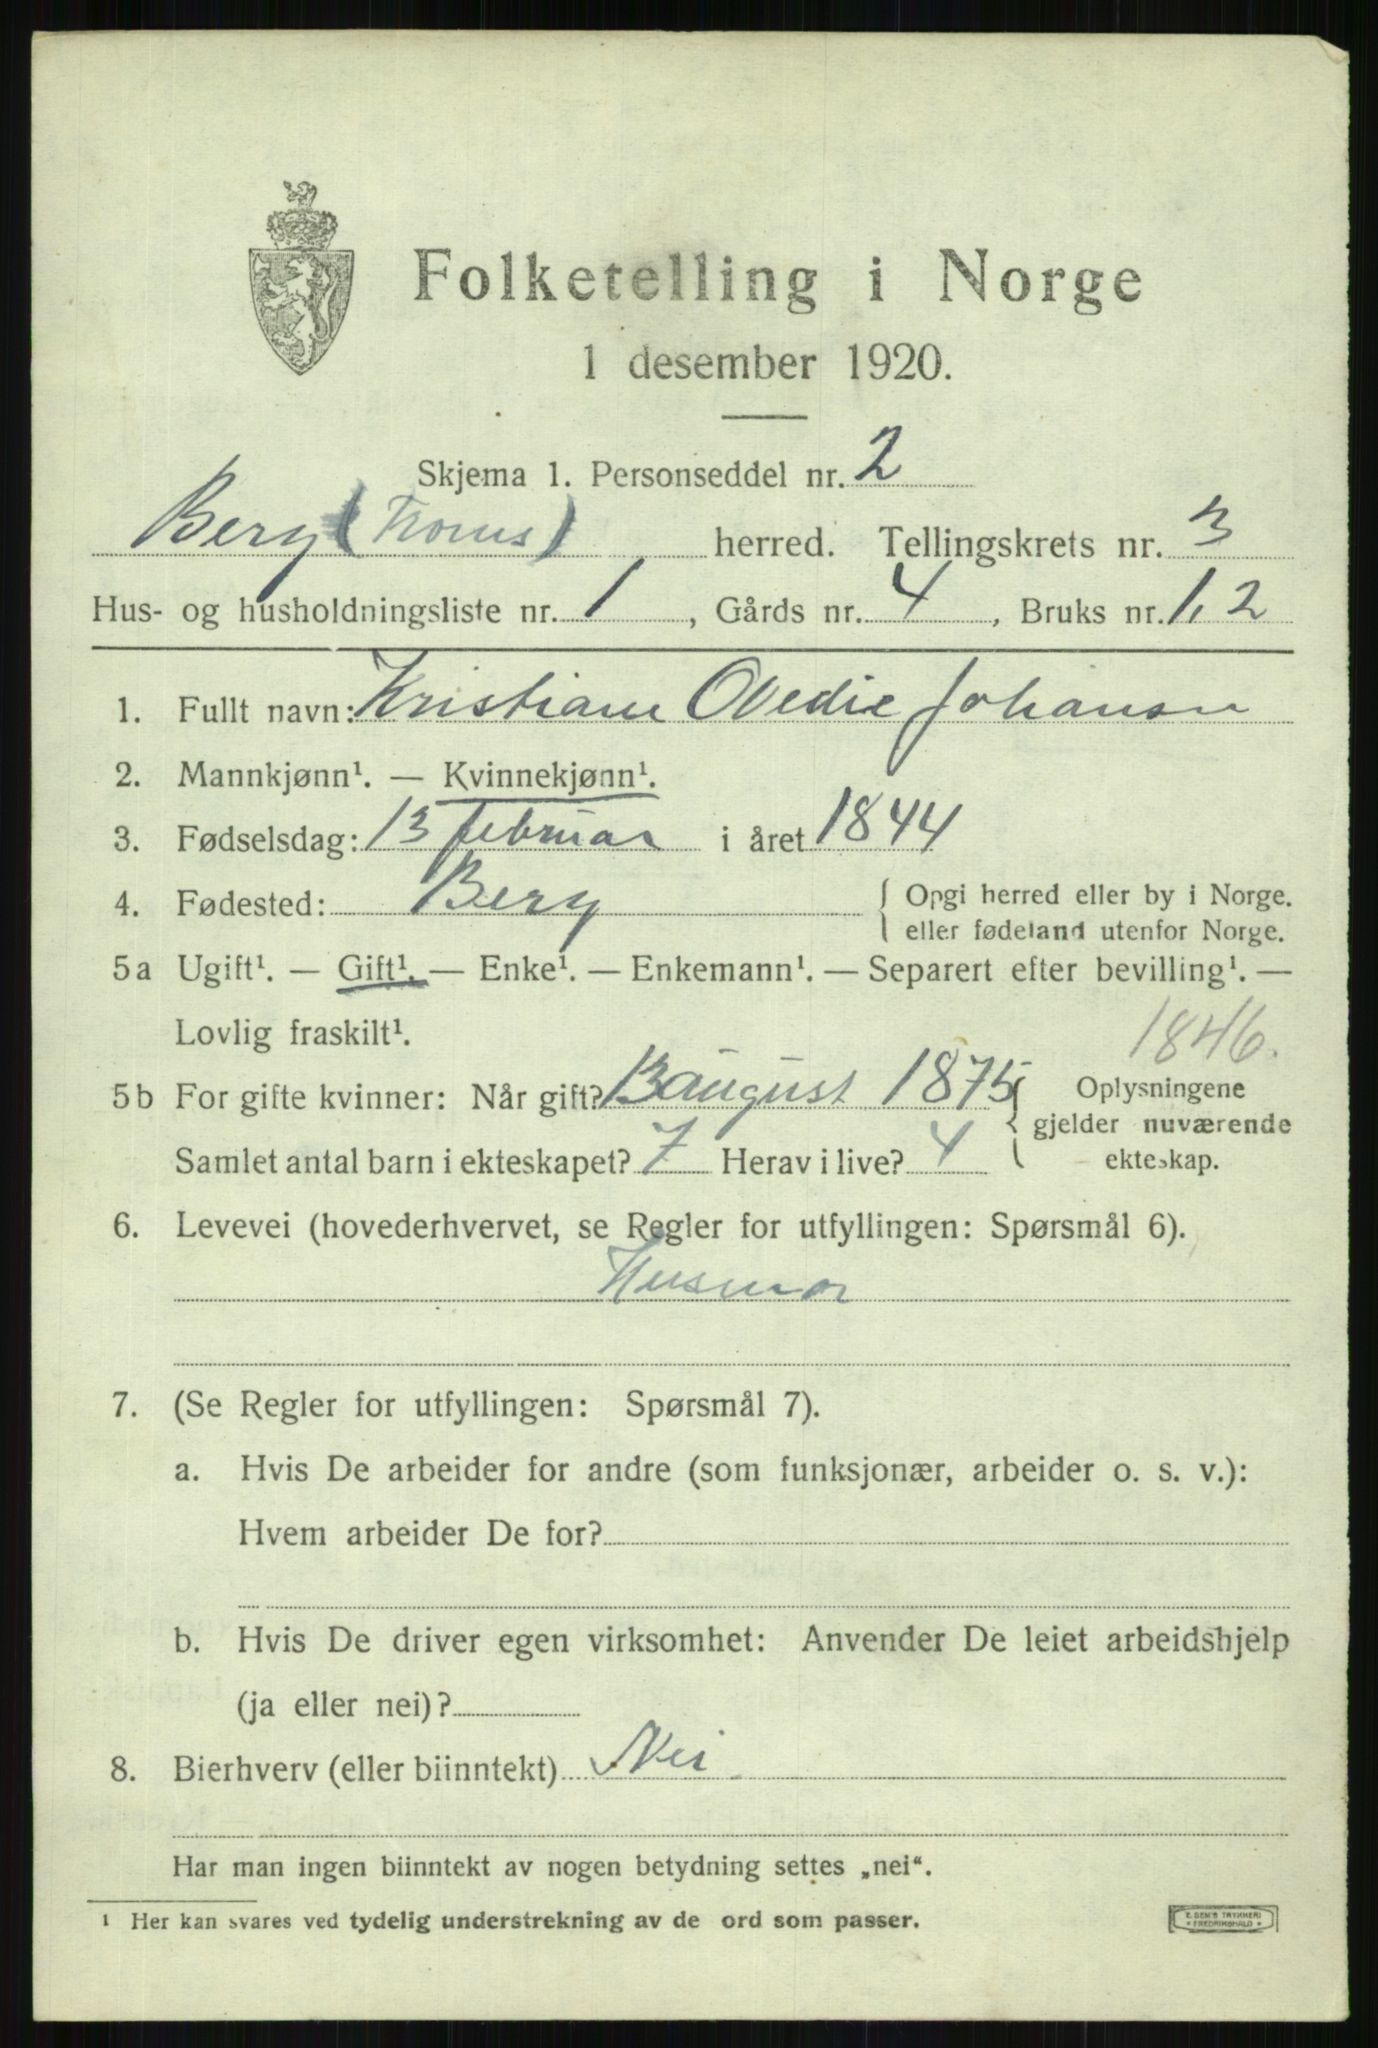 Folketelling i Norge
1 desember 1920.
Skjema 1. Personseddel nr. 2
Berg (Troms) herred. Tellingskrets nr. 3
Hus- og husholdningsliste nr. 1, Gårds nr. 4, Bruks nr. 1, 2
1. Fullt navn: Kristiane Ovedie Johansen
2. Mannkjønn¹. — Kvinnekjønn¹.
3. Fødselsdag: 13 februar i året 1844
4. Fødested: Berg { Opgi herred eller by i Norge.
eller fødeland utenfor Norge.
5a Ugift¹. — Gift¹. — Enke¹. — Enkemann¹. — Separert efter bevilling¹. —
Lovlig fraskilt¹.
1846.
5b For gifte kvinner: Når gift? 13 august 1875 { Oplysningene
gjelder nuværende
Samlet antal barn i ekteskapet? 7 Herav i live? 4 ekteskap.
6. Levevei (hovederhvervet, se Regler for utfyllingen: Spørsmål 6).
Husmor
7. (Se Regler for utfyllingen: Spørsmål 7).
a. Hvis De arbeider for andre (som funksjonær, arbeider o. s. v.):
Hvem arbeider De for?
b. Hvis De driver egen virksomhet: Anvender De leiet arbeidshjelp
(ja eller nei)?
8. Bierhverv (eller biinntekt) Nei
Har man ingen biinntekt av nogen betydning settes „nei“.
¹ Her kan svares ved tydelig understrekning av de ord som passer.
E. SEM'S TRYKKERI
* FREDRIKSHALD *